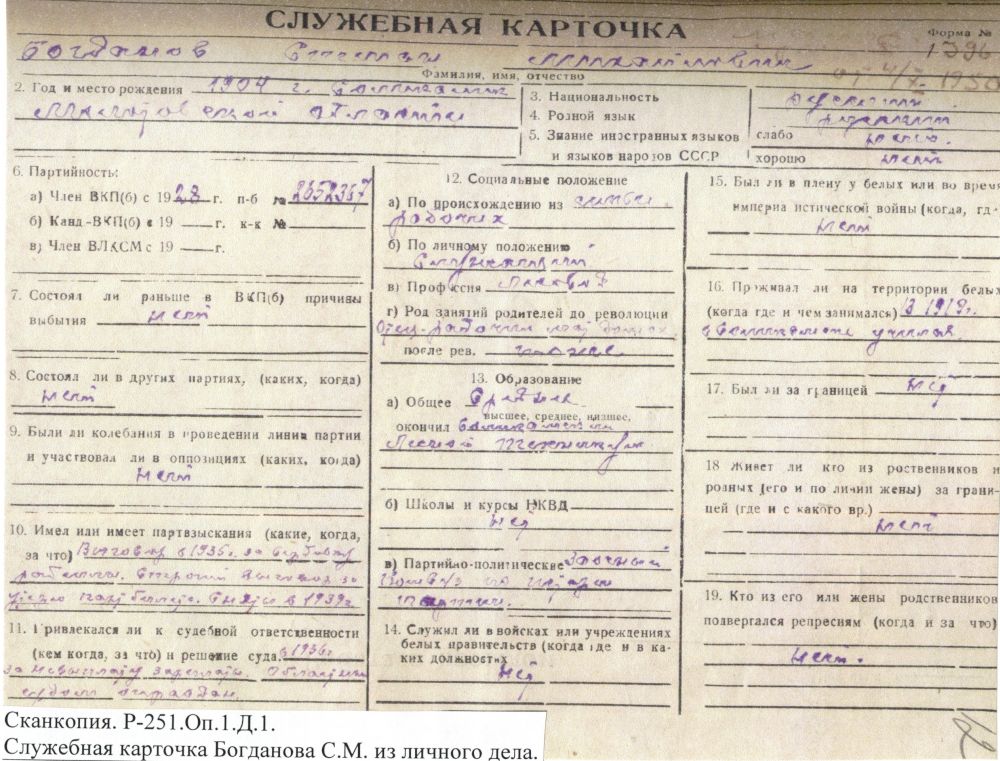 СЛУЖЕБНАЯ КАРТОЧКА
Форма №
1396
от 4/X 1950
Богданов Степан Михайлович
Фамилия, имя, отчество
2. Год и место рождения 1904 г.
области
3. Национальность русский
4. Родной язык русский
5. Знание иностранных языков и языков народов СССР
слабо нет
хорошо нет
6. Партийность:
а) Член ВКП(б) с 1928 г. п-б № 2652367
б) Канд-ВКП(б) с 19 — г. к-к № —
в) Член ВЛКСМ с 19 — г.
7. Состоял ли раньше в ВКП(б) причины
выбытия нет
8. Состоял ли в других партиях, (каких, когда)
нет
9. Были ли колебания в проведении линии партии
и участвовал ли в оппозициях (каких, когда)
нет
10. Имел или имеет партвзыскания (какие, когда,
за что) Выговор в 1935 г. за
работы. Строгий выговор за
в 1939 г
11. Привлекался ли к судебной ответственности
(кем когда, за что) и решение суда. в 1936 г
за невыплату зарплаты. Областным
судом оправдан.
12. Социальные положение
а) По происхождению из семьи
рабочих
б) По личному положению
Служащий
в) Профессия
г) Род занятий родителей до революции
Отец-рабочий
после рев. также
13. Образование
а) Общее Среднее
высшее, среднее, низшее,
окончил
Лесной Техникум
б) Школы и курсы НКВД
нет
в) Партийно-политические Заочный
Комвуз по
партии.
14. Служил ли в войсках или учреждениях
белых правительств (когда где и в ка-
ких должностях
нет
15. Был ли в плену у белых или во время
империалистической войны (когда, гд
нет
16. Проживал ли на территории белых
(когда где и чем занимался) В 1919 г.
учился
17. Был ли за границей нет
18 Живет ли кто из роственников и
родных (его и по линии жены) за грани-
цей (где и с какого вр.)
нет
19. Кто из его или жены родственников
подвергался репресиям (когда и за что)
нет.
12
Сканкопия. Р-251.Оп.1.Д.1.
Служебная карточка Богданова С.М. из личного дела.